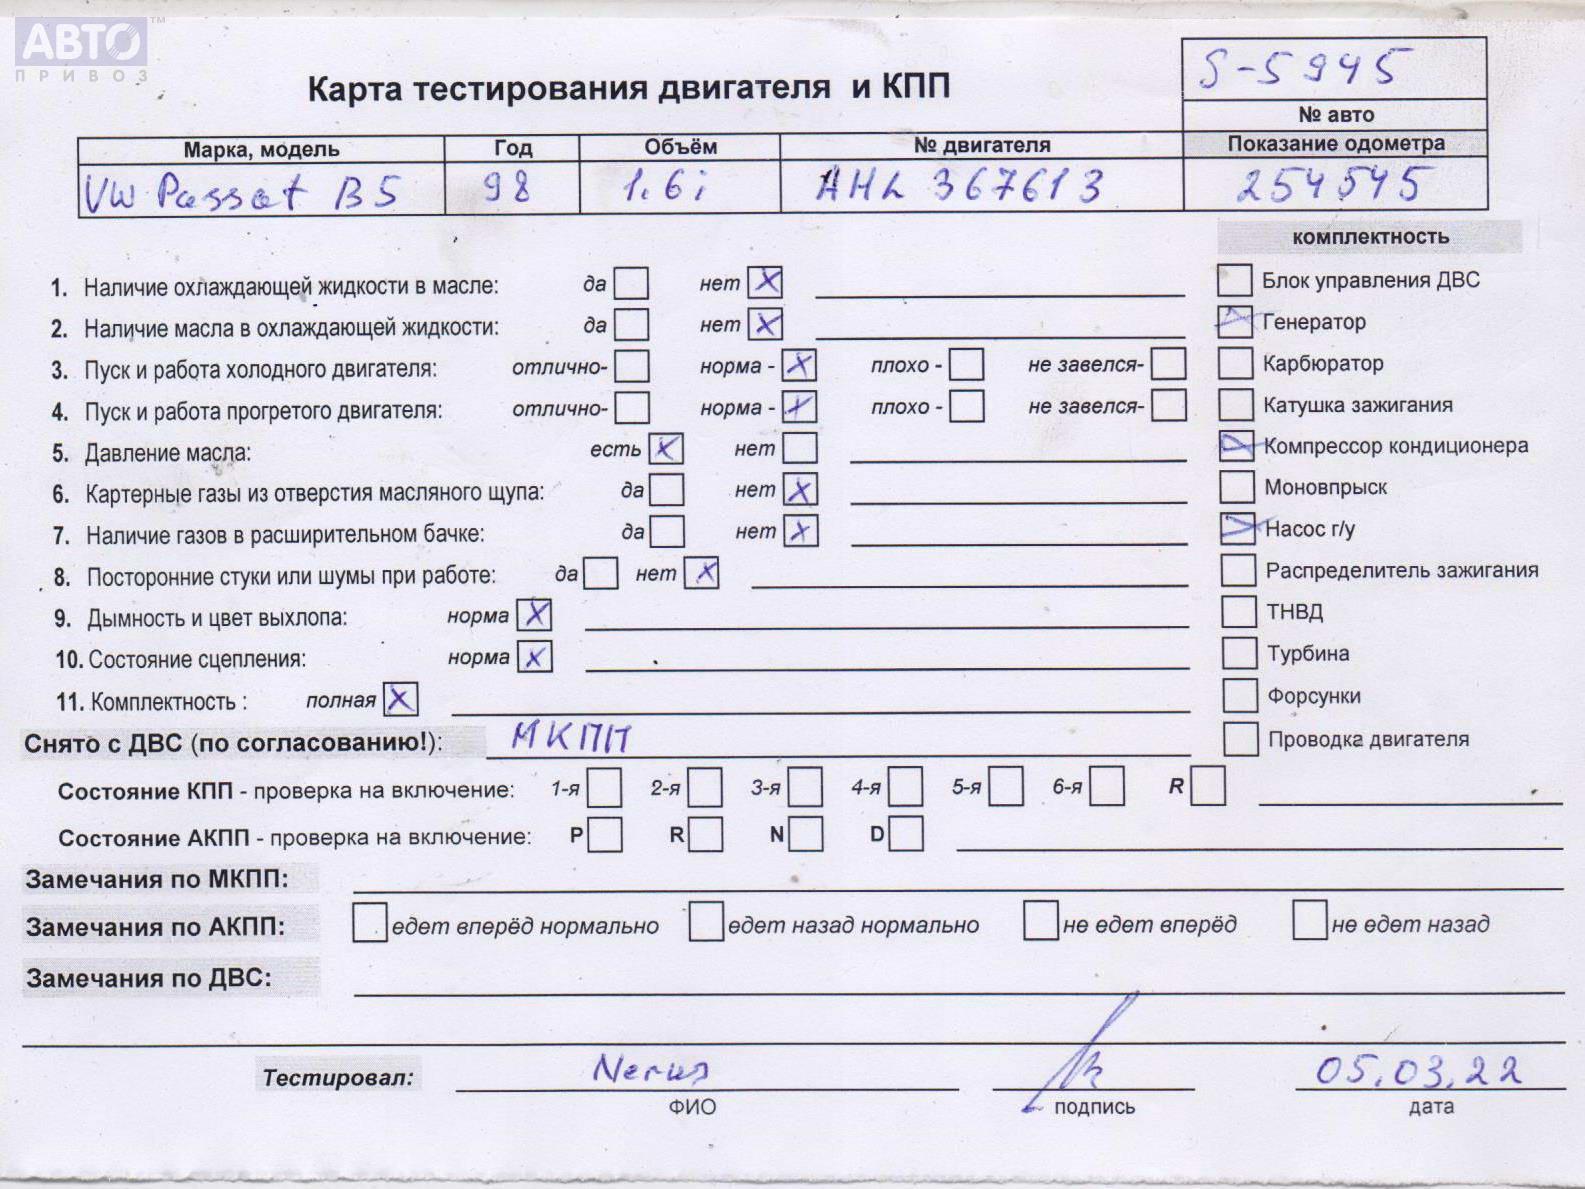 АВТО™
ПРИВОЗ
S-5945
Карта тестирования двигателя и КПП
№ авто
Марка, модель Год Объём № двигателя Показание одометра
VW Passat B5 98 1.6i AHL 367613 254545
комплектность
1. Наличие охлаждающей жидкости в масле: да нет X
Блок управления ДВС
2. Наличие масла в охлаждающей жидкости: да нет X
Генератор
3. Пуск и работа холодного двигателя: отлично- норма - X плохо - не завелся-
Карбюратор
4. Пуск и работа прогретого двигателя: отлично- норма - X плохо - не завелся-
Катушка зажигания
5. Давление масла: есть X нет
Компрессор кондиционера
6. Картерные газы из отверстия масляного щупа: да нет X
Моновпрыск
7. Наличие газов в расширительном бачке: да нет X
Насос г/у
8. Посторонние стуки или шумы при работе: да нет X
Распределитель зажигания
9. Дымность и цвет выхлопа: норма X
ТНВД
10. Состояние сцепления: норма X
Турбина
11. Комплектность : полная X
Форсунки
Снято с ДВС (по согласованию!): МКПП
Проводка двигателя
Состояние КПП - проверка на включение: 1-я 2-я 3-я 4-я 5-я 6-я R
Состояние АКПП - проверка на включение: P R N D
Замечания по МКПП:
Замечания по АКПП: едет вперёд нормально едет назад нормально не едет вперёд не едет назад
Замечания по ДВС:
Тестировал: 05.03.22
ФИО подпись дата